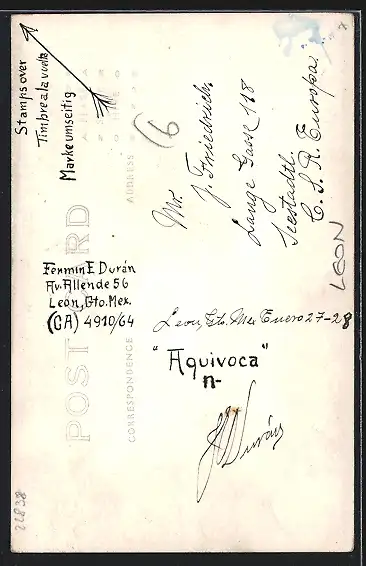 Stamps over
Timbre a la vuelta
Marke umseitig
POST CARD
CORRESPONDENCE
ADDRESS
6
Mr.
J. Friedrich,
Lange Gasse 118
Seestadtl.
C. S. R. Europa.
LEON
Fermin E Durán
Av. Allende 56
Leon, Gto. Mex.
(CA) 4910/64
Leon, Gto. Mex Enero 27-28
"Aquivoca"
n-
Durán
22838